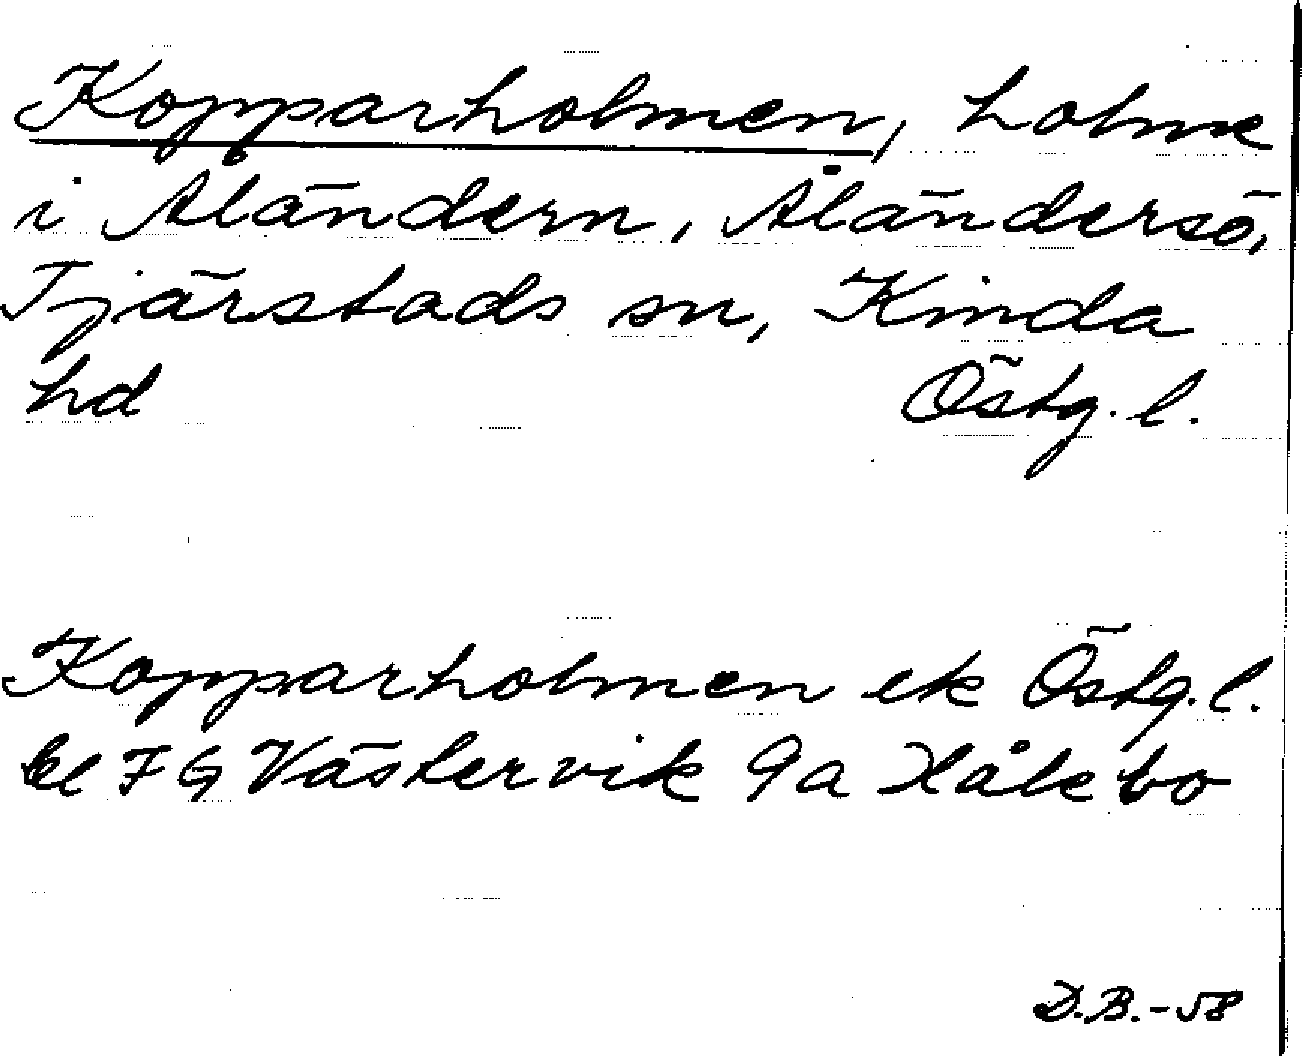 Kopparholmen, holme
i Åländern, Åländersö,
Tjärstads sn, Kinda
hd Östg. l.
Kopparholmen ek Östg. l.
bl 7 G Västervik 9a Hålebo
D.B.-58